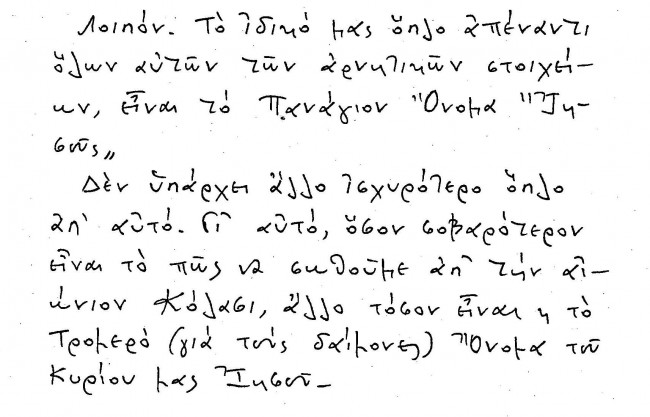 Λοιπόν. Τὸ ἰδικό μας ὅπλο ἀπέναντι
ὅλων αὐτῶν τῶν ἀρνητικῶν στοιχεί-
ων, εἶναι τό Πανάγιον "Ὄνομα "Ἰη-
σοῦς„
Δὲν ὑπάρχει ἄλλο ἰσχυρότερο ὅπλο
ἀπ' αὐτό. Γι' αὐτό, ὅσον σοβαρότερον
εἶναι τὸ πῶς νὰ σωθοῦμε ἀπ' τήν αἰ-
ώνιον Κόλασι, ἄλλο τόσον εἶναι κ τὸ
Τρομερό (γιά τούς δαίμονες) "Ὄνομα τοῦ
Κυρίου μας Ἰησοῦ-